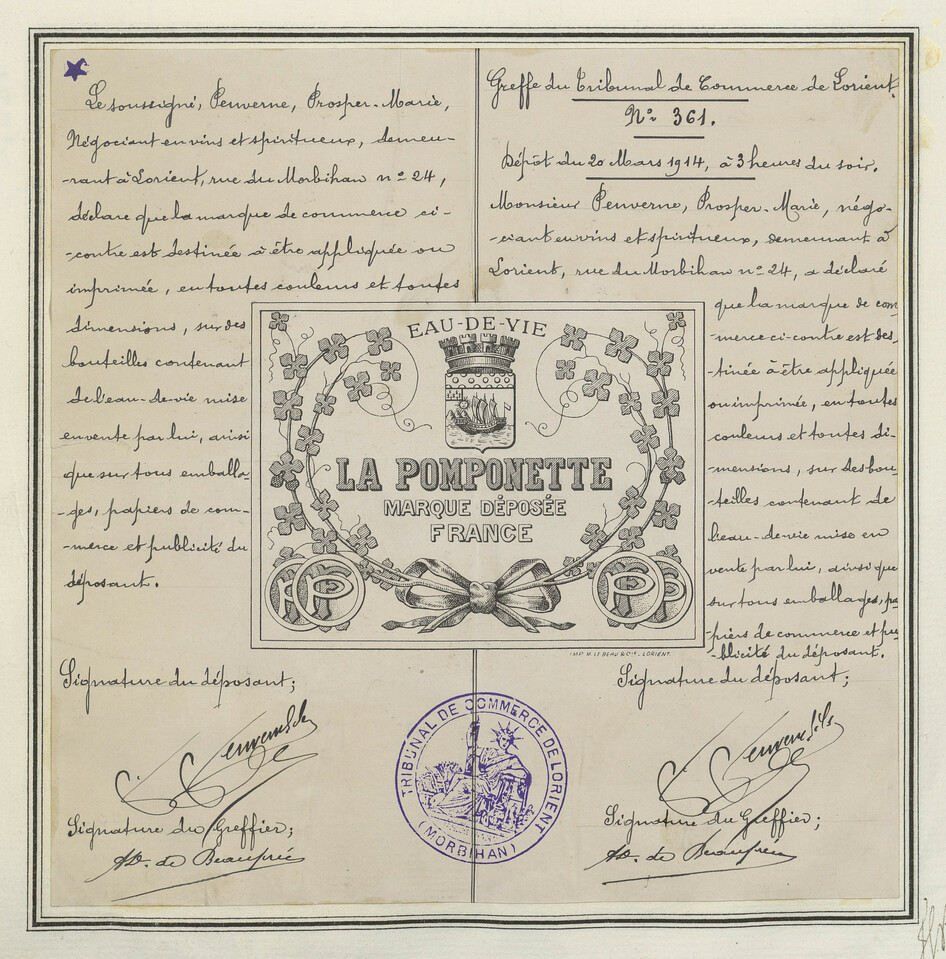 Le soussigné, Penverne, Prosper-Marie,
Négociant en vins et spiritueux, demeu-
-rant à Lorient, rue du Morbihan nº 24,
déclare que la marque de commerce ci-
-contre est destinée à être appliquée ou
imprimée, en toutes couleurs et toutes
dimensions, sur des
bouteilles contenant
de l'eau-de-vie mise
en vente par lui, ainsi
que sur tous emballa-
-ges, papiers de com-
-merce et publicité du
déposant.
Signature du déposant;
Penverne fils
Signature du Greffier;
Ad. de Beaupré
Greffe du Tribunal de Commerce de Lorient.
Nº 361.
Dépôt du 20 Mars 1914, à 3 heures du soir.
Monsieur Penverne, Prosper-Marie, négo-
-ciant en vins et spiritueux, demeurant à
Lorient, rue du Morbihan nº 24, a déclaré
que la marque de com-
-merce ci-contre est des-
-tinée à être appliquée
ou imprimée, en toutes
couleurs et toutes di-
-mensions, sur des bou-
-teilles contenant de
l'eau-de-vie mise en
vente par lui, ainsi que
sur tous emballages, pa-
-piers de commerce et pu-
-blicité du déposant.
Signature du déposant;
Penverne fils
Signature du Greffier;
Ad. de Beaupré
EAU-DE-VIE
LA POMPONETTE
MARQUE DÉPOSÉE
FRANCE
PP
PP
IMP. H. LE BEAU & Cie - LORIENT.
TRIBUNAL DE COMMERCE DE LORIENT
(MORBIHAN)